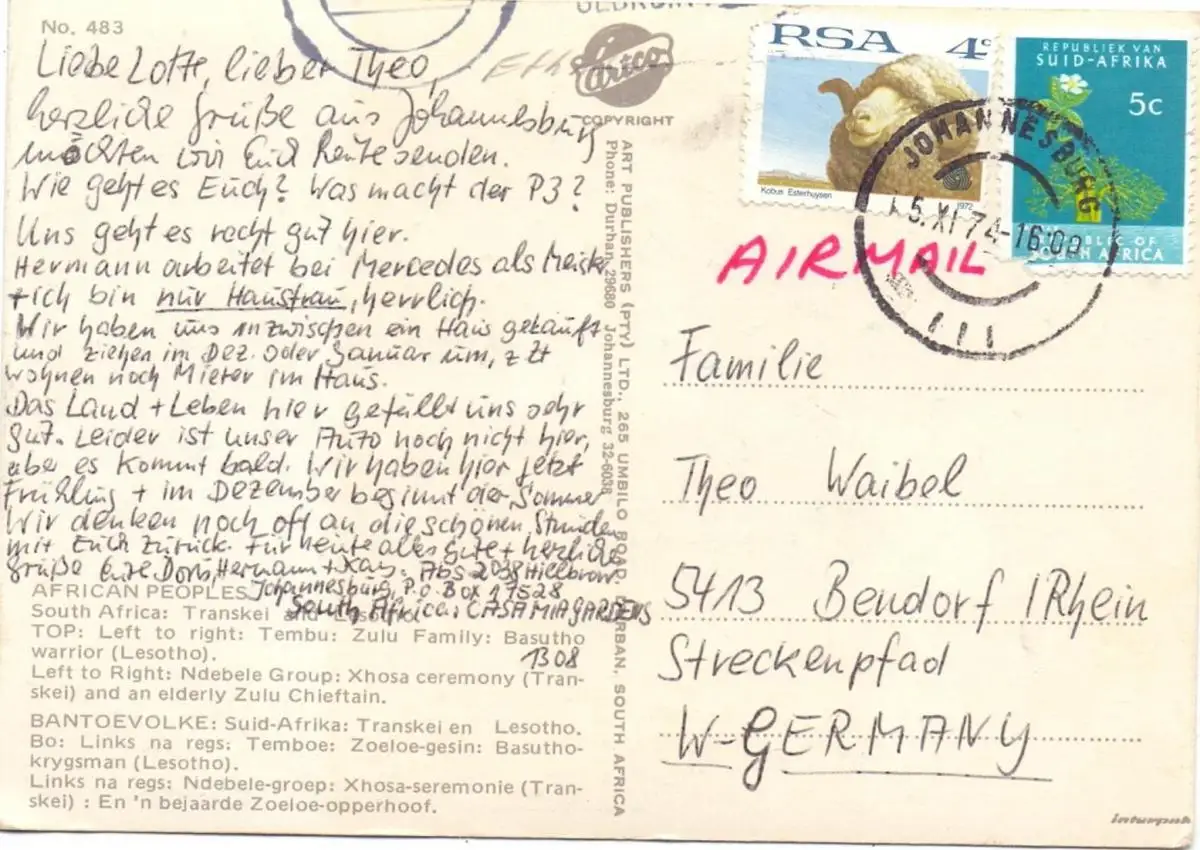 No. 483
Liebe Lotte, lieber Theo,
herzliche Grüße aus Johannesburg
möchten wir Euch heute senden.
Wie geht es Euch? Was macht der P3?
Uns geht es recht gut hier.
Hermann arbeitet bei Mercedes als Meister
+ ich bin nur Hausfrau, herrlich.
Wir haben uns inzwischen ein Haus gekauft
und ziehen im Dez. oder Januar um, z Zt
wohnen noch Mieter im Haus.
Das Land + Leben hier gefällt uns sehr
gut. Leider ist unser Auto noch nicht hier,
aber es kommt bald. Wir haben hier jetzt
Frühling + im Dezember beginnt der Sommer
Wir denken noch oft an die schönen Stunden
mit Euch zurück. Für heute alles Gute + herzliche
Grüße Eure Doris, Hermann + Kay. Abs 2038 Hillbrow
Johannesburg, P.O. Box 17528
South Africa. CASA MIA GARDENS
1308
AFRICAN PEOPLES
South Africa: Transkei and Lesotho.
TOP: Left to right: Tembu: Zulu Family: Basutho
warrior (Lesotho).
Left to Right: Ndebele Group: Xhosa ceremony (Tran-
skei) and an elderly Zulu Chieftain.
BANTOEVOLKE: Suid-Afrika: Transkei en Lesotho.
Bo: Links na regs: Temboe: Zoeloe-gesin: Basutho-
krygsman (Lesotho).
Links na regs: Ndebele-groep: Xhosa-seremonie (Tran-
skei) : En 'n bejaarde Zoeloe-opperhoof.
Artco
COPYRIGHT
ART PUBLISHERS (PTY) LTD., 265 UMBILO ROAD, DURBAN, SOUTH AFRICA
Phone: Durban 29680 Johannesburg 32-6038
RSA 4c
Kobus Esterhuysen 1972
REPUBLIEK VAN
SUID-AFRIKA
5c
REPUBLIC OF
SOUTH AFRICA
JOHANNESBURG
5.XI.74-16:00
AIRMAIL
Familie
Theo Waibel
5413 Bendorf / Rhein
Streckenpfad
W-GERMANY